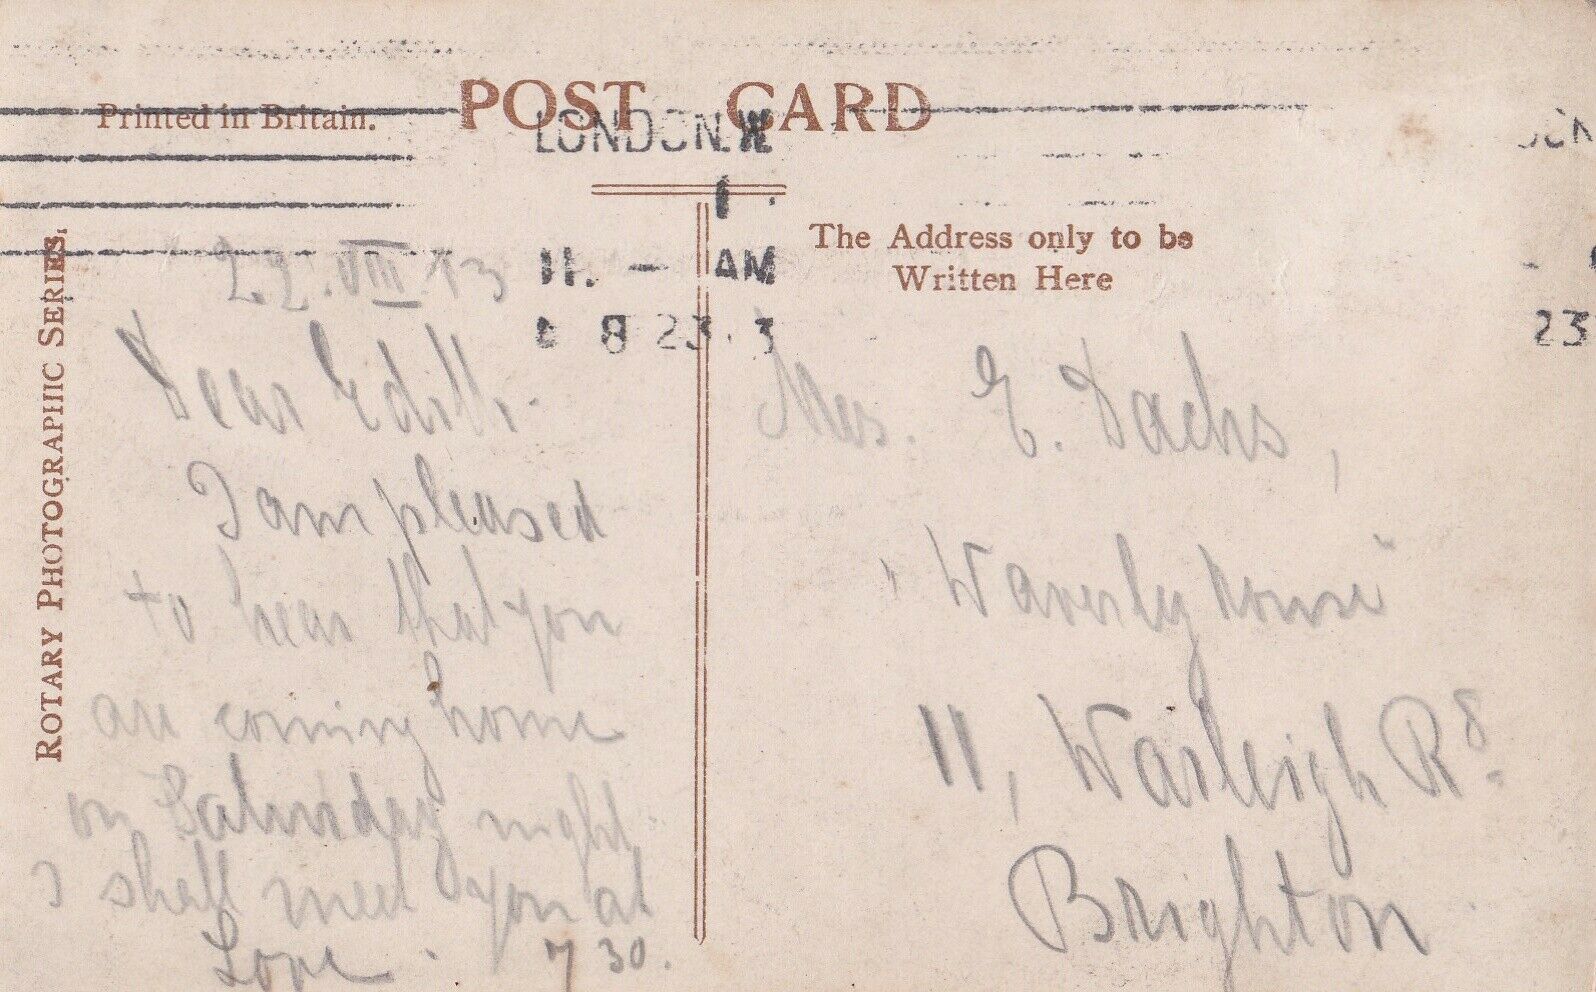 Printed in Britain.
POST CARD
LONDON.W.
1.
11. - AM
8 23. 3
ROTARY PHOTOGRAPHIC SERIES.
22.VIII.13
Dear Edith.
I am pleased
to hear that you
are coming home
on Saturday night
I shall meet you at
7 30.
Love.
The Address only to be
Written Here
Mrs. E. Dachs,
"Waverley House"
11, Warleigh Rd.
Brighton
23